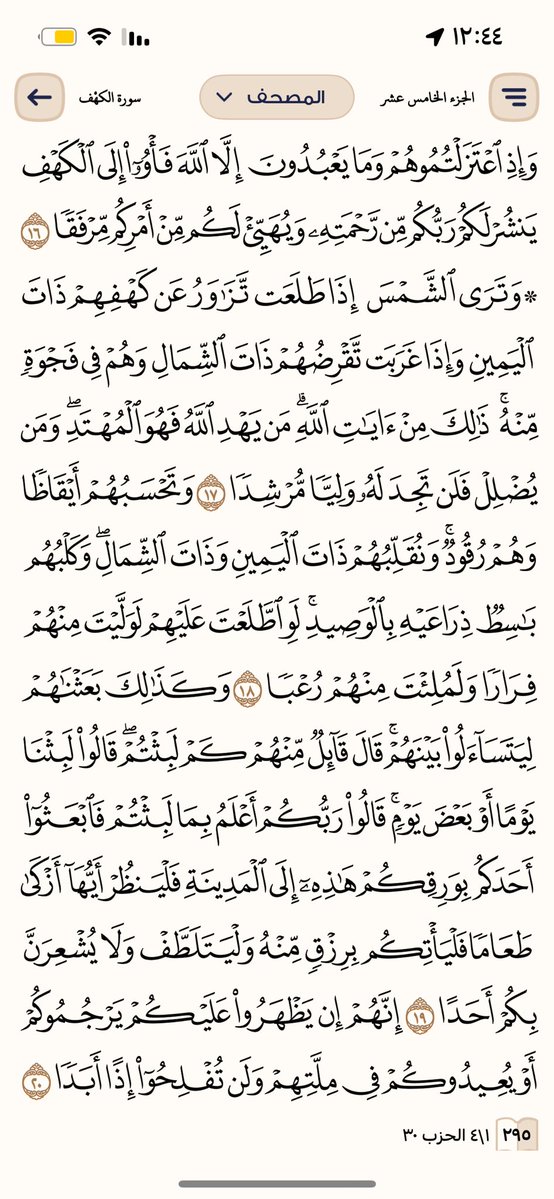 ١٢:٤٤
الجزء الخامس عشر المصحف سورة الكهف
وَإِذِ ٱعۡتَزَلۡتُمُوهُمۡ وَمَا يَعۡبُدُونَ إِلَّا ٱللَّهَ فَأۡوُۥٓاْ إِلَى ٱلۡكَهۡفِ
يَنشُرۡ لَكُمۡ رَبُّكُم مِّن رَّحۡمَتِهِۦ وَيُهَيِّئۡ لَكُم مِّنۡ أَمۡرِكُم مِّرۡفَقٗا ١٦
۞ وَتَرَى ٱلشَّمۡسَ إِذَا طَلَعَت تَّزَٰوَرُ عَن كَهۡفِهِمۡ ذَاتَ
ٱلۡيَمِينِ وَإِذَا غَرَبَت تَّقۡرِضُهُمۡ ذَاتَ ٱلشِّمَالِ وَهُمۡ فِي فَجۡوَةٖ
مِّنۡهُۚ ذَٰلِكَ مِنۡ ءَايَٰتِ ٱللَّهِۗ مَن يَهۡدِ ٱللَّهُ فَهُوَ ٱلۡمُهۡتَدِۖ وَمَن
يُضۡلِلۡ فَلَن تَجِدَ لَهُۥ وَلِيّٗا مُّرۡشِدٗا ١٧ وَتَحۡسَبُهُمۡ أَيۡقَاظٗا
وَهُمۡ رُقُودٞۚ وَنُقَلِّبُهُمۡ ذَاتَ ٱلۡيَمِينِ وَذَاتَ ٱلشِّمَالِۖ وَكَلۡبُهُم
بَٰسِطٞ ذِرَاعَيۡهِ بِٱلۡوَصِيدِۚ لَوِ ٱطَّلَعۡتَ عَلَيۡهِمۡ لَوَلَّيۡتَ مِنۡهُمۡ
فِرَارٗا وَلَمُلِئۡتَ مِنۡهُمۡ رُعۡبٗا ١٨ وَكَذَٰلِكَ بَعَثۡنَٰهُمۡ
لِيَتَسَآءَلُواْ بَيۡنَهُمۡۚ قَالَ قَآئِلٞ مِّنۡهُمۡ كَمۡ لَبِثۡتُمۡۖ قَالُواْ لَبِثۡنَا
يَوۡمًا أَوۡ بَعۡضَ يَوۡمٖۚ قَالُواْ رَبُّكُمۡ أَعۡلَمُ بِمَا لَبِثۡتُمۡ فَٱبۡعَثُوٓاْ
أَحَدَكُم بِوَرِقِكُمۡ هَٰذِهِۦٓ إِلَى ٱلۡمَدِينَةِ فَلۡيَنظُرۡ أَيُّهَآ أَزۡكَىٰ
طَعَامٗا فَلۡيَأۡتِكُم بِرِزۡقٖ مِّنۡهُ وَلۡيَتَلَطَّفۡ وَلَا يُشۡعِرَنَّ
بِكُمۡ أَحَدًا ١٩ إِنَّهُمۡ إِن يَظۡهَرُواْ عَلَيۡكُمۡ يَرۡجُمُوكُمۡ
أَوۡ يُعِيدُوكُمۡ فِي مِلَّتِهِمۡ وَلَن تُفۡلِحُوٓاْ إِذًا أَبَدٗا ٢٠
٢٩٥ ١\٤ الحزب ٣٠